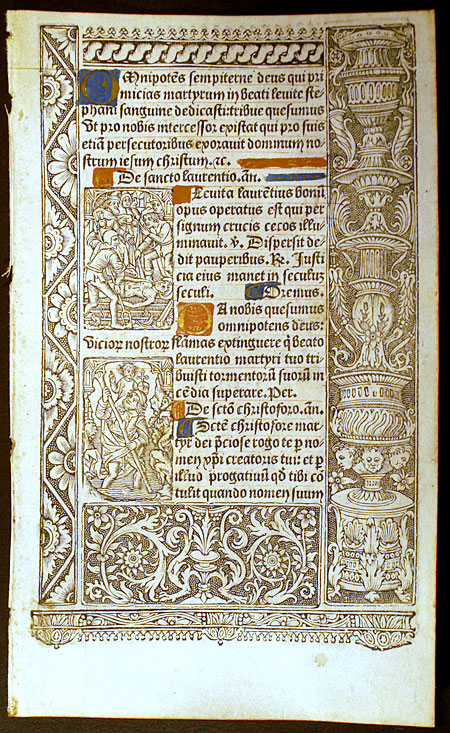 Omnipotēs sempiterne deus qui pri
micias martyrum in beati leuite ste
phani sanguine dedicasti: tribue quesumus
Vt pro nobis intercessor existat qui pro suis
etiā persecutoribus exorauit dominum no
strum iesum christum. ⁊c.
De sancto laurentio. añ.
Leuita laurētius bonū
opus operatus est qui per
signum crucis cecos illu
minauit. v̄. Dispersit de
dit pauperibus. R. Justi
cia eius manet in seculuz
seculi. Oremus.
DA nobis quesumus
omnipotens deus:
Viciorū nostrorū flāmas extinguere q̄ beato
laurentio martyri tuo tri
buisti tormentorū suorū in
cēdia superare. Per.
De sctō christoforo. añ.
Sctē christofore mar
tyr dei p̄ciose rogo te p̄ no
men xp̄i creatoris tui: et p̄
illuō progatiuū qđ tibi cō
tulit quando nomen suum